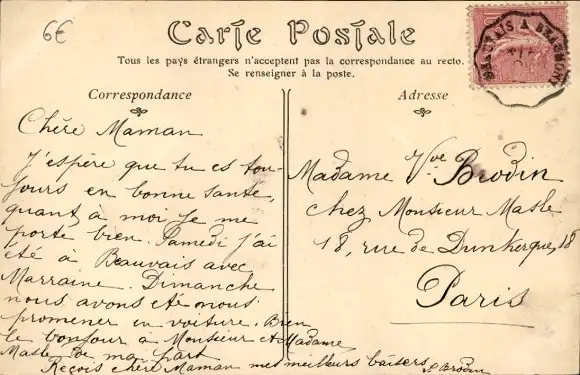 6€
Carte Postale
Tous les pays étrangers n'acceptent pas la correspondance au recto.
Se renseigner à la poste.
Correspondance
Chère Maman
J'espère que tu es tou-
jours en bonne santé,
quant à moi je me
porte bien. Samedi j'ai
été à Beauvais avec
Marraine. Dimanche
nous avons été nous
promener en voiture. Bien
le bonjour à Monsieur et Madame
Masle de ma part
Reçois chère Maman mes meilleurs baisers
Brodin
Adresse
Madame Vve Brodin
chez Monsieur Masle
18, rue de Dunkerque, 18
Paris
BEAUVAIS A BEAUMONT